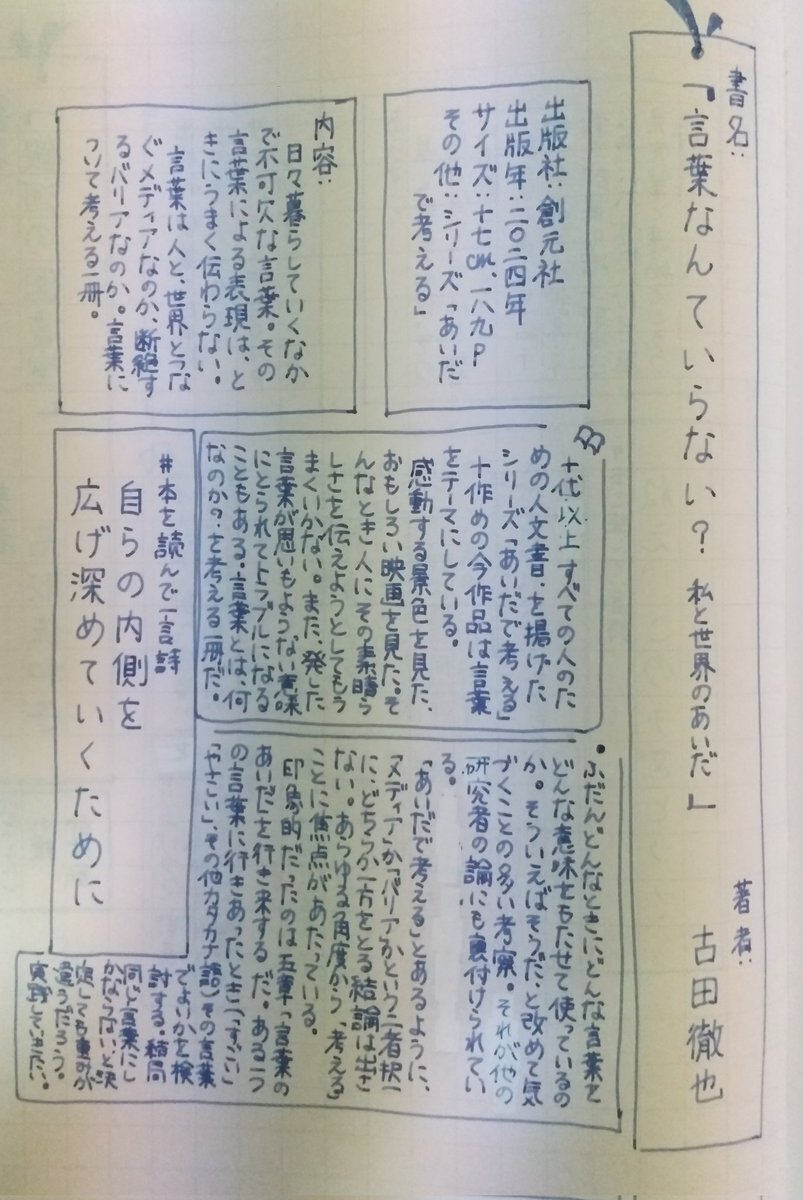 書名:
『言葉なんていらない？ 私と世界のあいだ』
著者:
古田徹也
出版社:創元社
出版年:二〇二四年
サイズ:十七cm、一八九P
その他:シリーズ「あいだ
で考える」
内容:
日々暮らしていくなか
で不可欠な言葉。その
言葉による表現は、と
きにうまく伝わらない。
言葉は人と、世界とつな
ぐメディアなのか、断絶す
るバリアなのか。言葉に
ついて考える一冊。
十代以上すべての人のた
めの人文書.を掲げた
シリーズ「あいだで考える」
十作めの今作品は言葉
をテーマにしている。
感動する景色を見た、
おもしろい映画を見た。そ
んなとき人にその素晴ら
しさを伝えようとしてもう
まくいかない。また、発した
言葉が思いもようない意味
にとられてトラブルになる
こともある。言葉とは、何
なのか?を考える一冊だ。
#本を読んで一言詩
自らの内側を
広げ深めていくために
・ふだんどんなときに、どんな言葉を
どんな意味をもたせて使っているの
か。そういえばそうだ、と改めて気
づくことの多い考察。それが他の
研究者の論にも裏付けられてい
る。
「あいだで考える」とあるように、
「メディア」か「バリア」かという二者択一
に、どちらか一方をとる結論は出さ
ない。あらゆる角度から「考える」
ことに焦点があたっている。
印象的だったのは五章「言葉の
あいだを行き来する」だ。ある一つ
の言葉に行きあったとき(「すごい」
「やさしい」、その他カタカナ語)その言葉
でよいかを検
討する。結局
同じ言葉にし
かならないと決
定しても重みが
違うだろう。
実践していきたい。